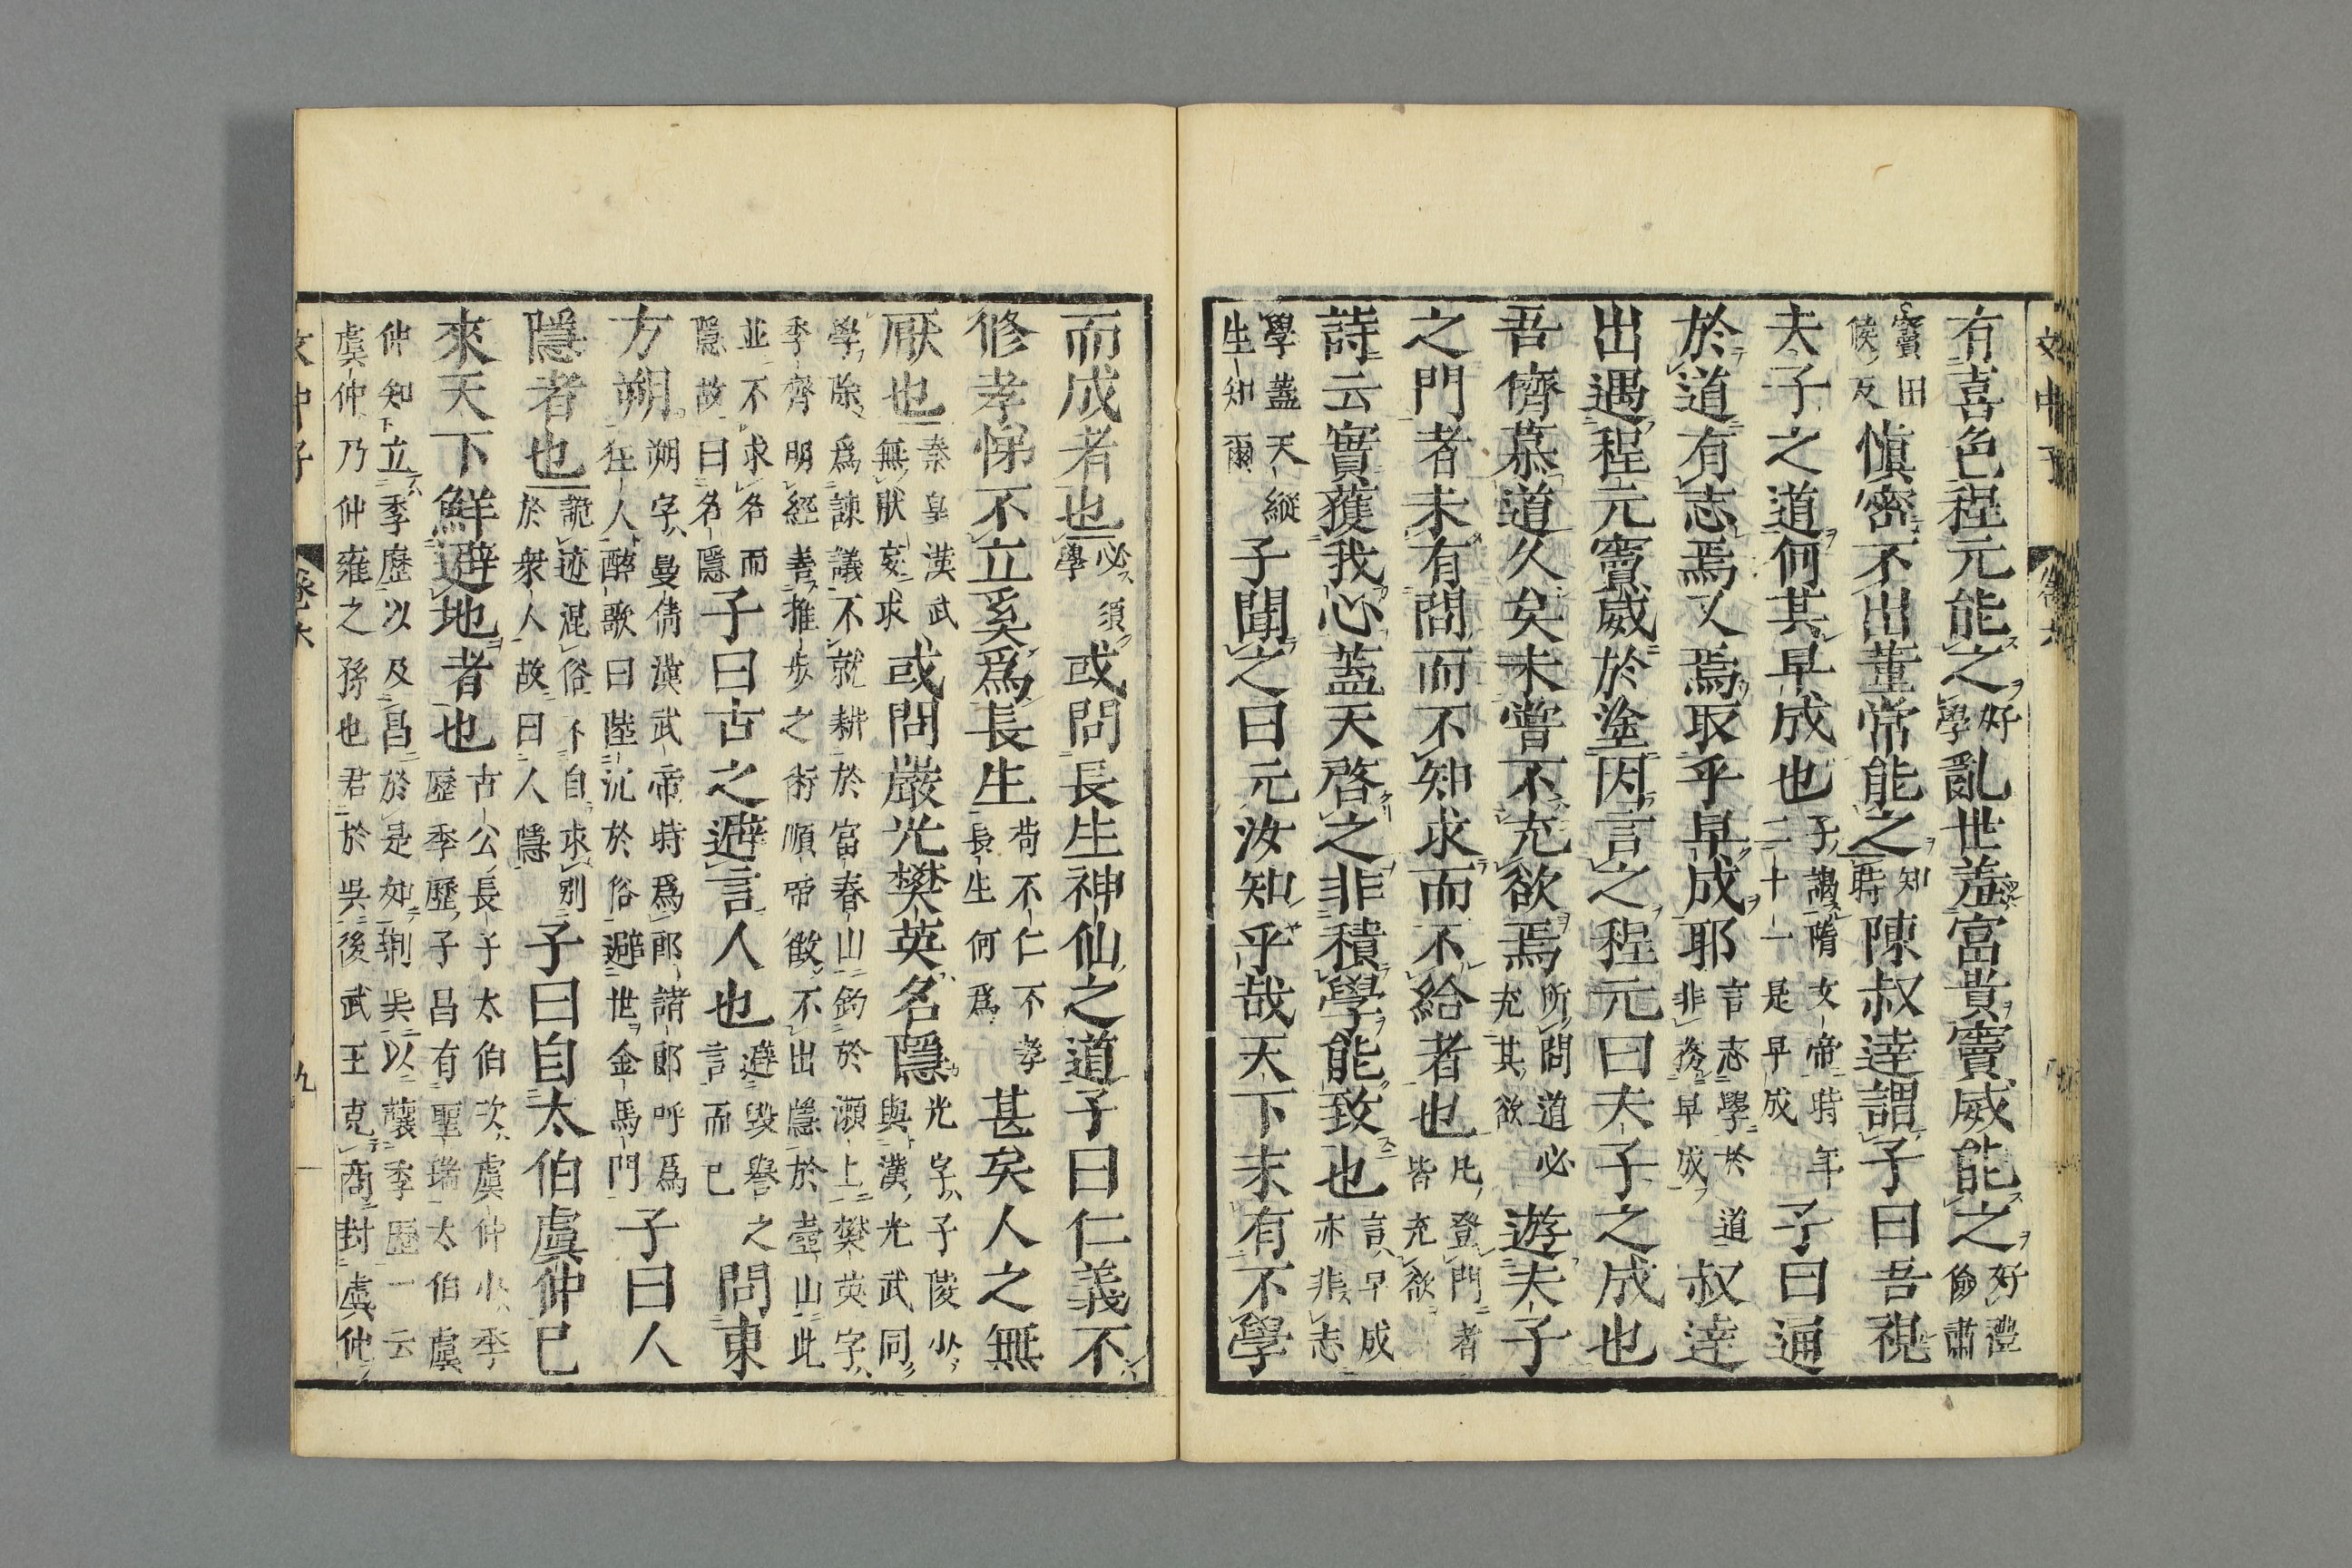 有喜色程元能之好學亂世羞富貴竇威能之好禮儉肅
竇田候反慎密不出董常能之知時陳叔達謂子曰吾視
夫子之道何其早成也子謁隋文帝時年二十一是早成子曰通
於道有志焉又焉取乎早成耶言志學於道非務早成叔達
出遇程元竇威於塗因言之程元曰夫子之成也
吾儕慕道久矣未嘗不充欲焉所問道必充其欲遊夫子
之門者未有問而不知求而不給者也凡登門者皆充欲
詩云實獲我心蓋天啓之非積學能致也言早成亦非志
學蓋天縱生知爾子聞之曰元汝知乎哉天下未有不學
而成者也必須學或問長生神仙之道子曰仁義不
修孝悌不立奚爲長生苟不仁不孝長生何爲甚矣人之無
厭也秦皇漢武無厭妄求或問嚴光樊英名隱光字子陵少與漢光武同
學除爲諫議不就耕於富春山釣於瀬上樊英字季齊明經善推歩之術順帝徵不出隱於壺山此
並不求名而隱故曰名隱子曰古之避言人也避毀譽之言而已問東
方朔朔字曼倩漢武帝時爲郎諸郎呼爲狂人醉歌曰陸沉於俗避世金馬門子曰人
隱者也詭迹混俗不自求別於衆人故曰人隱子曰自太伯虞仲已
來天下鮮避地者也古公長子太伯次虞仲小季歷季歷子昌有聖瑞太伯虞
仲知立季歷以及昌於是如荆吳以讓季歷一云虞仲乃仲雍之孫也君於吳後武王克商封虞仲
文中子 卷六 九